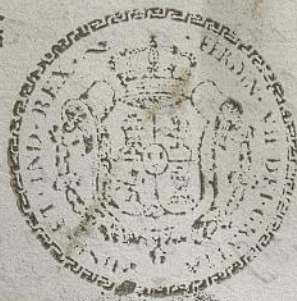 FERDIN · VII DEI GRATIA · ET IND · REX ·